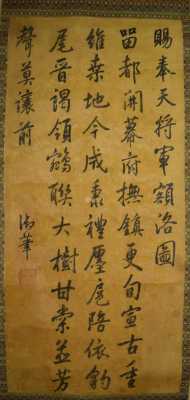 賜奉天將軍額洛圖
留都開幕府撫鎮更旬宣古重
維桑地今成秉禮廛扈陪依豹
尾晉謁領鵷聯大樹甘棠並芳
聲莫讓前
御筆